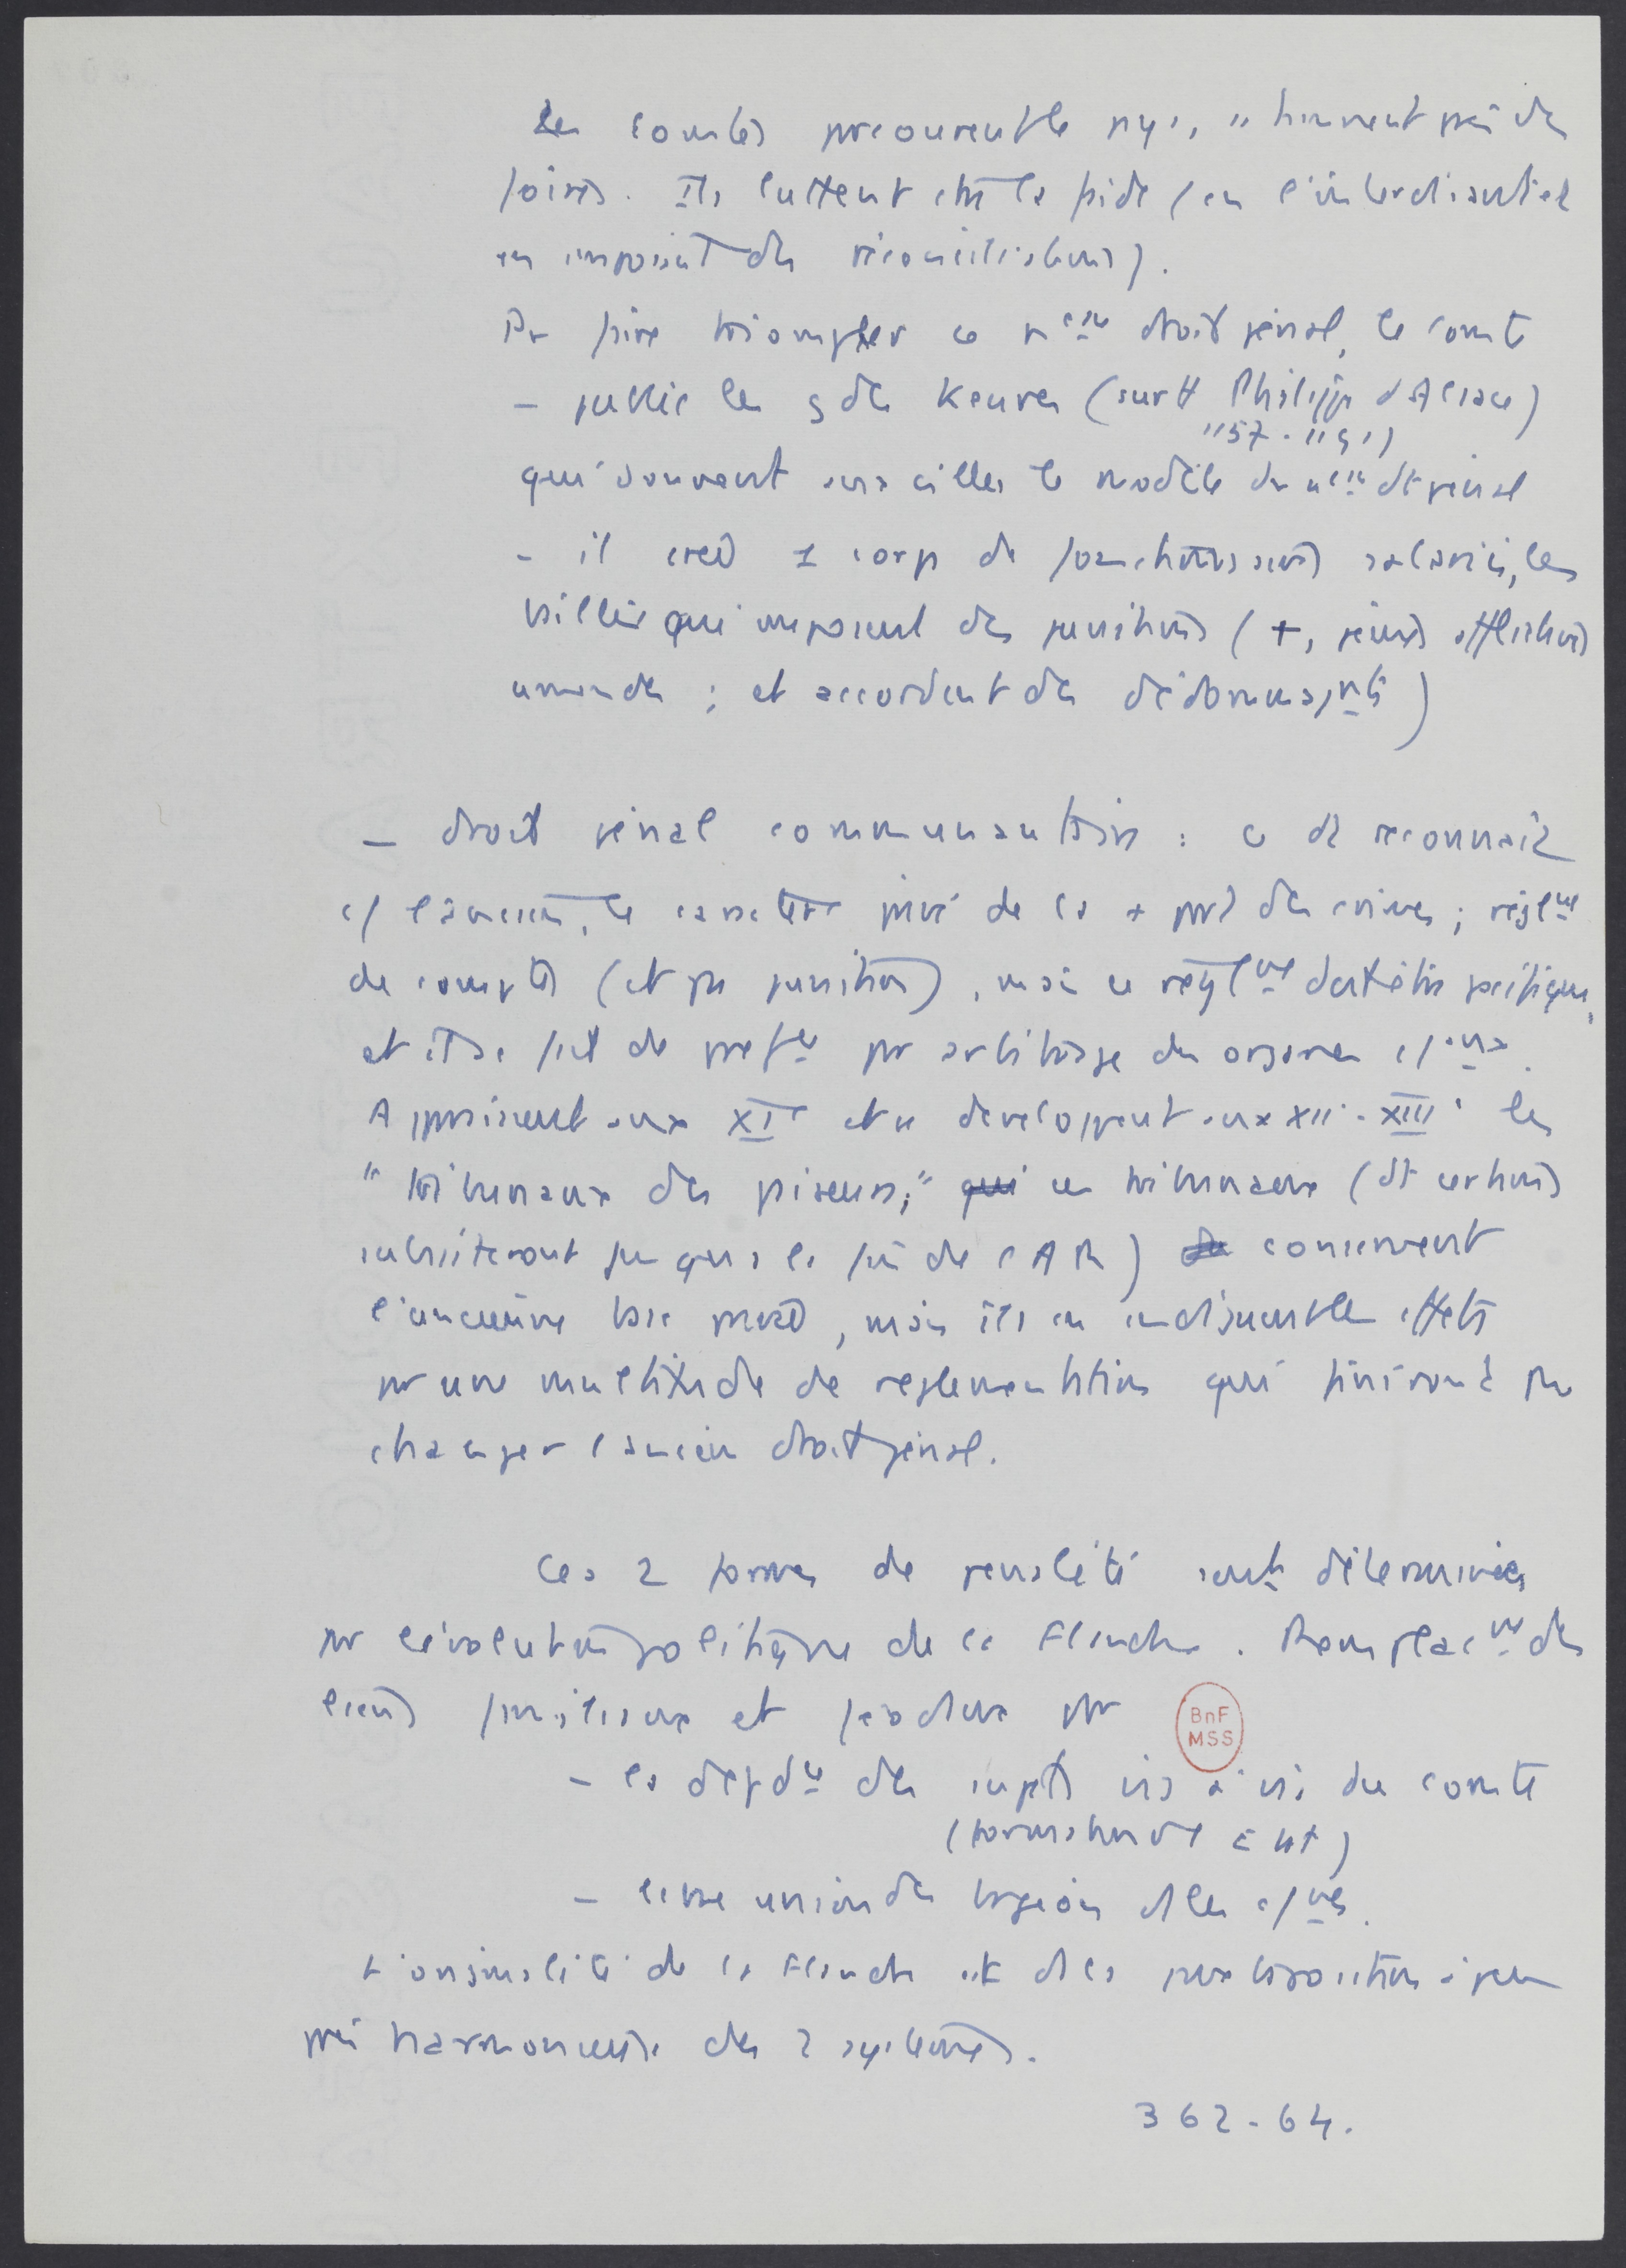 Les comtes parcourent le pays, tiennent près des
foires. Ils luttent ctre la faide (en l'interdisant et
en imposant des réconciliations).
Pr faire triompher ce nveau droit pénal, le comte
- publie les gdes Keures (surtt Philippe d'Alsace)
1157-1191)
qui donnent aux villes le modèle du nveau dt pénal
- il crée 1 corps de fonctionnaires salariés, les
baillis qui imposent des punitions (+, peines afflictives
amendes ; et accordent des dédommagmts)
- droit pénal communautaire : ce dt reconnait
c/ l'ancien, le caractère privé de la + part des crimes ; réglmt
de comptes (et pas punition), mais ce réglmt doit être pacifique,
et il se fait de préfce par arbitrage des organes
Apparaissent aux XIe et se développent aux XII-XIIIe les
"tribunaux des paiseurs," ces tribunaux (dt certains
subsisteront jusqu'à la fin de l'AR) conservent
l'ancienne base privée, mais ils en endiguent les effets
par une multitude de réglementations qui finiront par
changer l'ancien droit pénal.
Ces 2 formes de pénalité sont déterminées
par l'évolution politique de la Flandre. Remplacmt des
liens familiaux et féodaux par
BnF
MSS
- la dépdce des sujets vis à vis du comte
(formation d'1 Etat)
- l'union des bourgeois ds les
L'originalité de la Flandre est ds la juxtaposition à peu
près harmonieuse des 2 systèmes.
362-64.